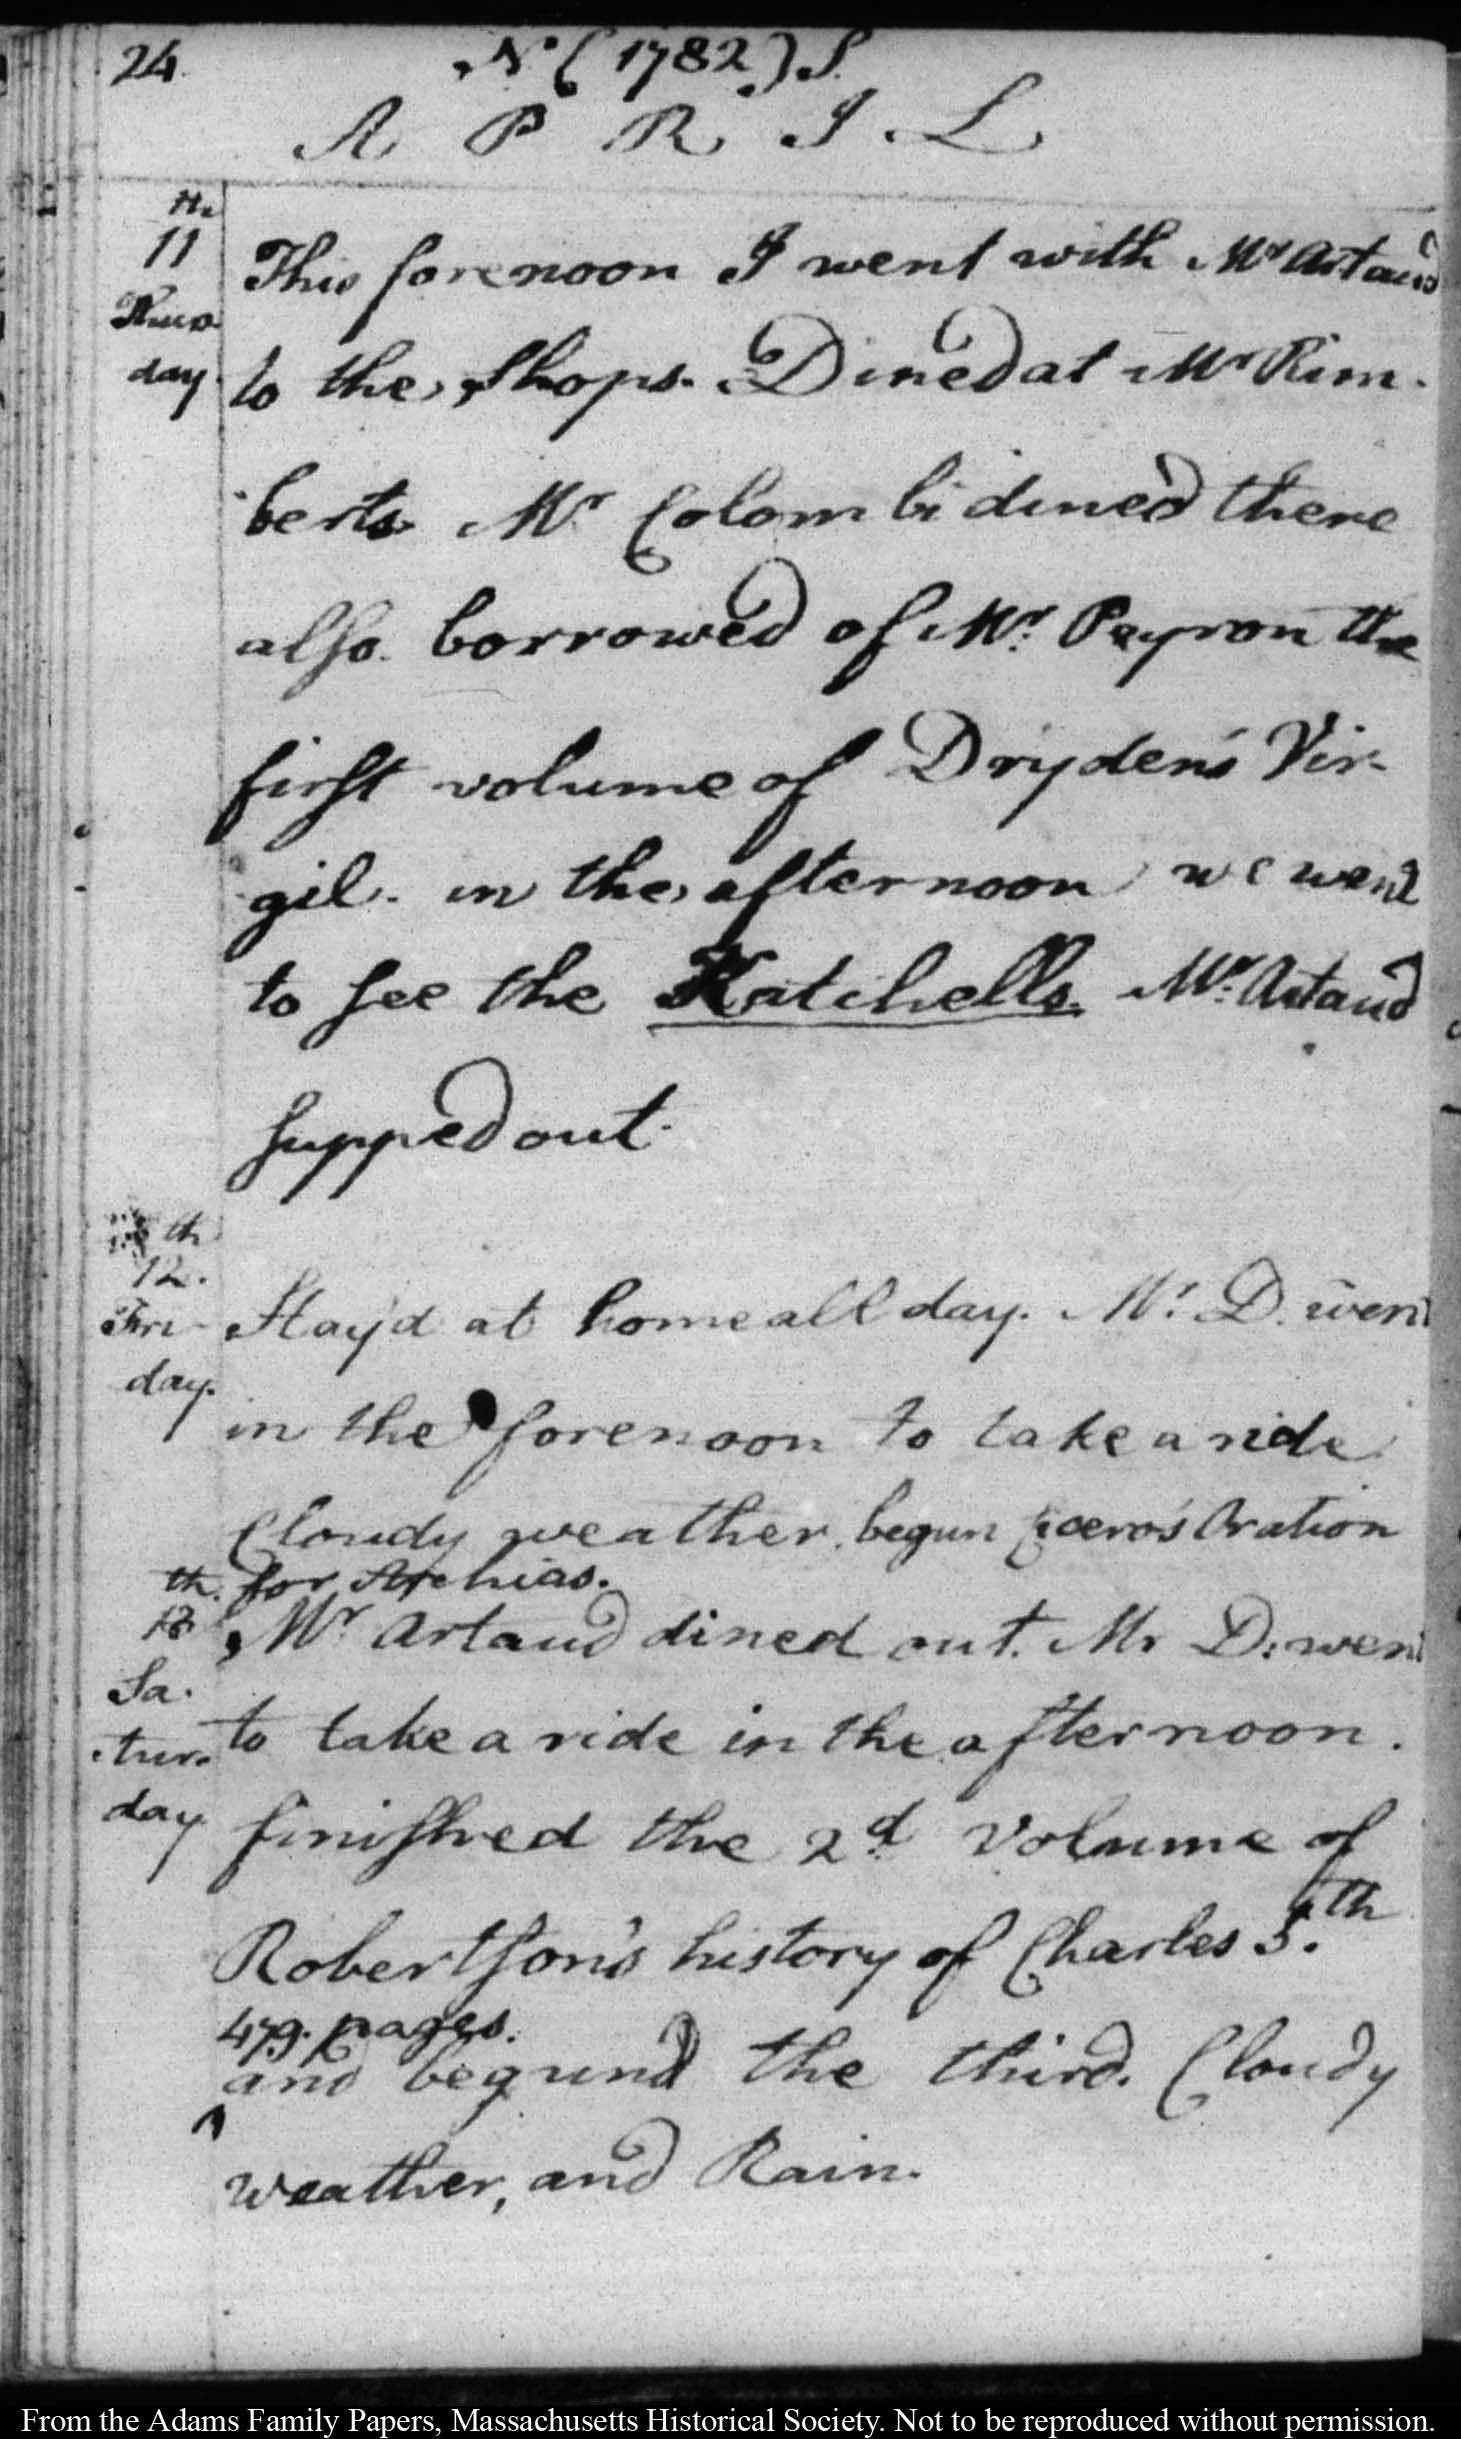 24.
N (1782) S.
A P R I L
th
11
Thurs
day
This forenoon I went with Mr Artaud
to the Shops. Dined at Mr Rim-
berts Mr Colombi dined there
also. borrowed of Mr. Peyron the
first volume of Dryden's Vir-
gil. in the afternoon we went
to see the Katchells. Mr. Artaud
supped out.
th
12.
Fri-
day.
Stay'd at home all day. Mr. D. went
in the forenoon to take a ride
Cloudy weather. begun Cicero's Oration
for Archias.
th.
13
Sa-
tur-
day
Mr Artaud dined out. Mr D. went
to take a ride in the afternoon.
finished the 2d. volume of
Robertson's history of Charles 5.th
479. pages.
and begund the third. Cloudy
weather, and Rain.
From the Adams Family Papers, Massachusetts Historical Society. Not to be reproduced without permission.